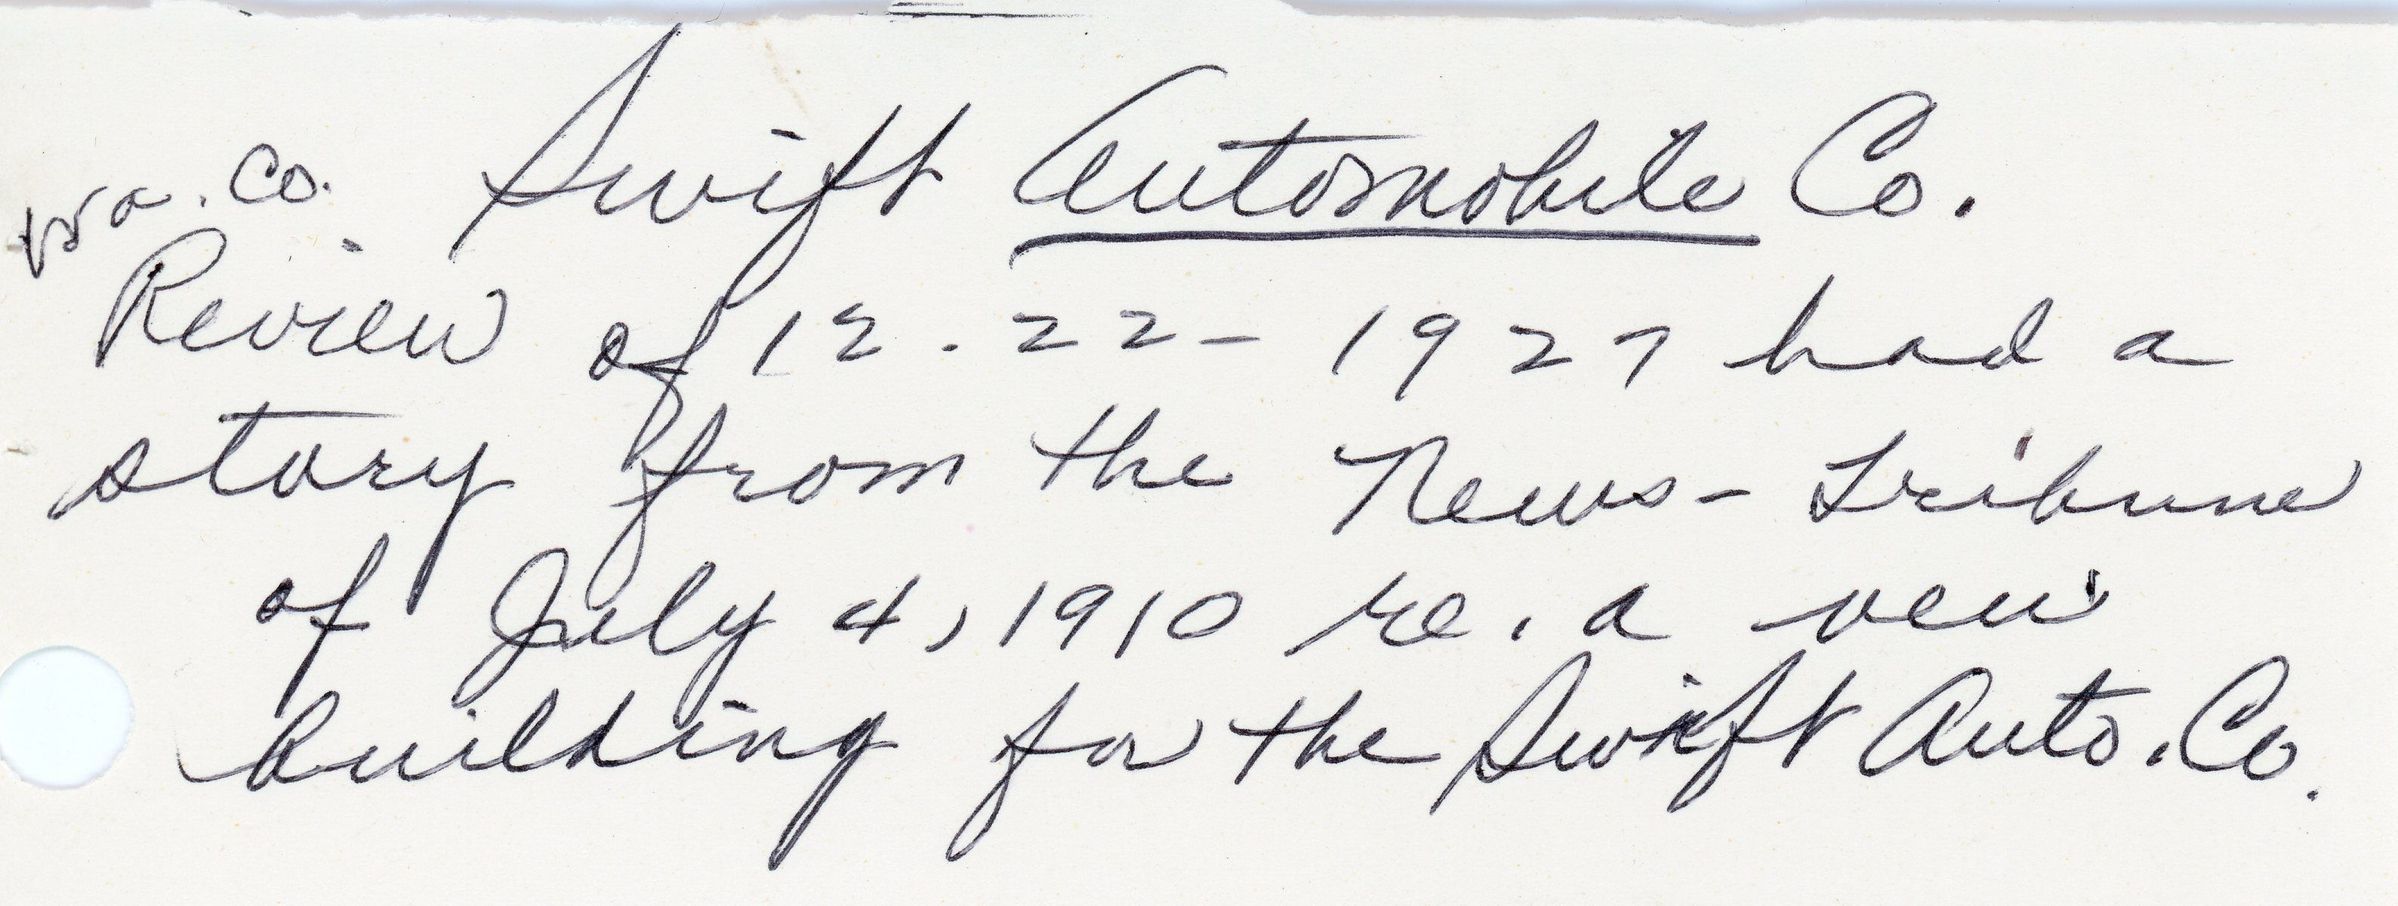 Swift Automobile Co.
Wa. Co.
Review of 12.22-1927 had a
story from the News-Tribune
of July 4, 1910 re. a new
building for the Swift Auto. Co.